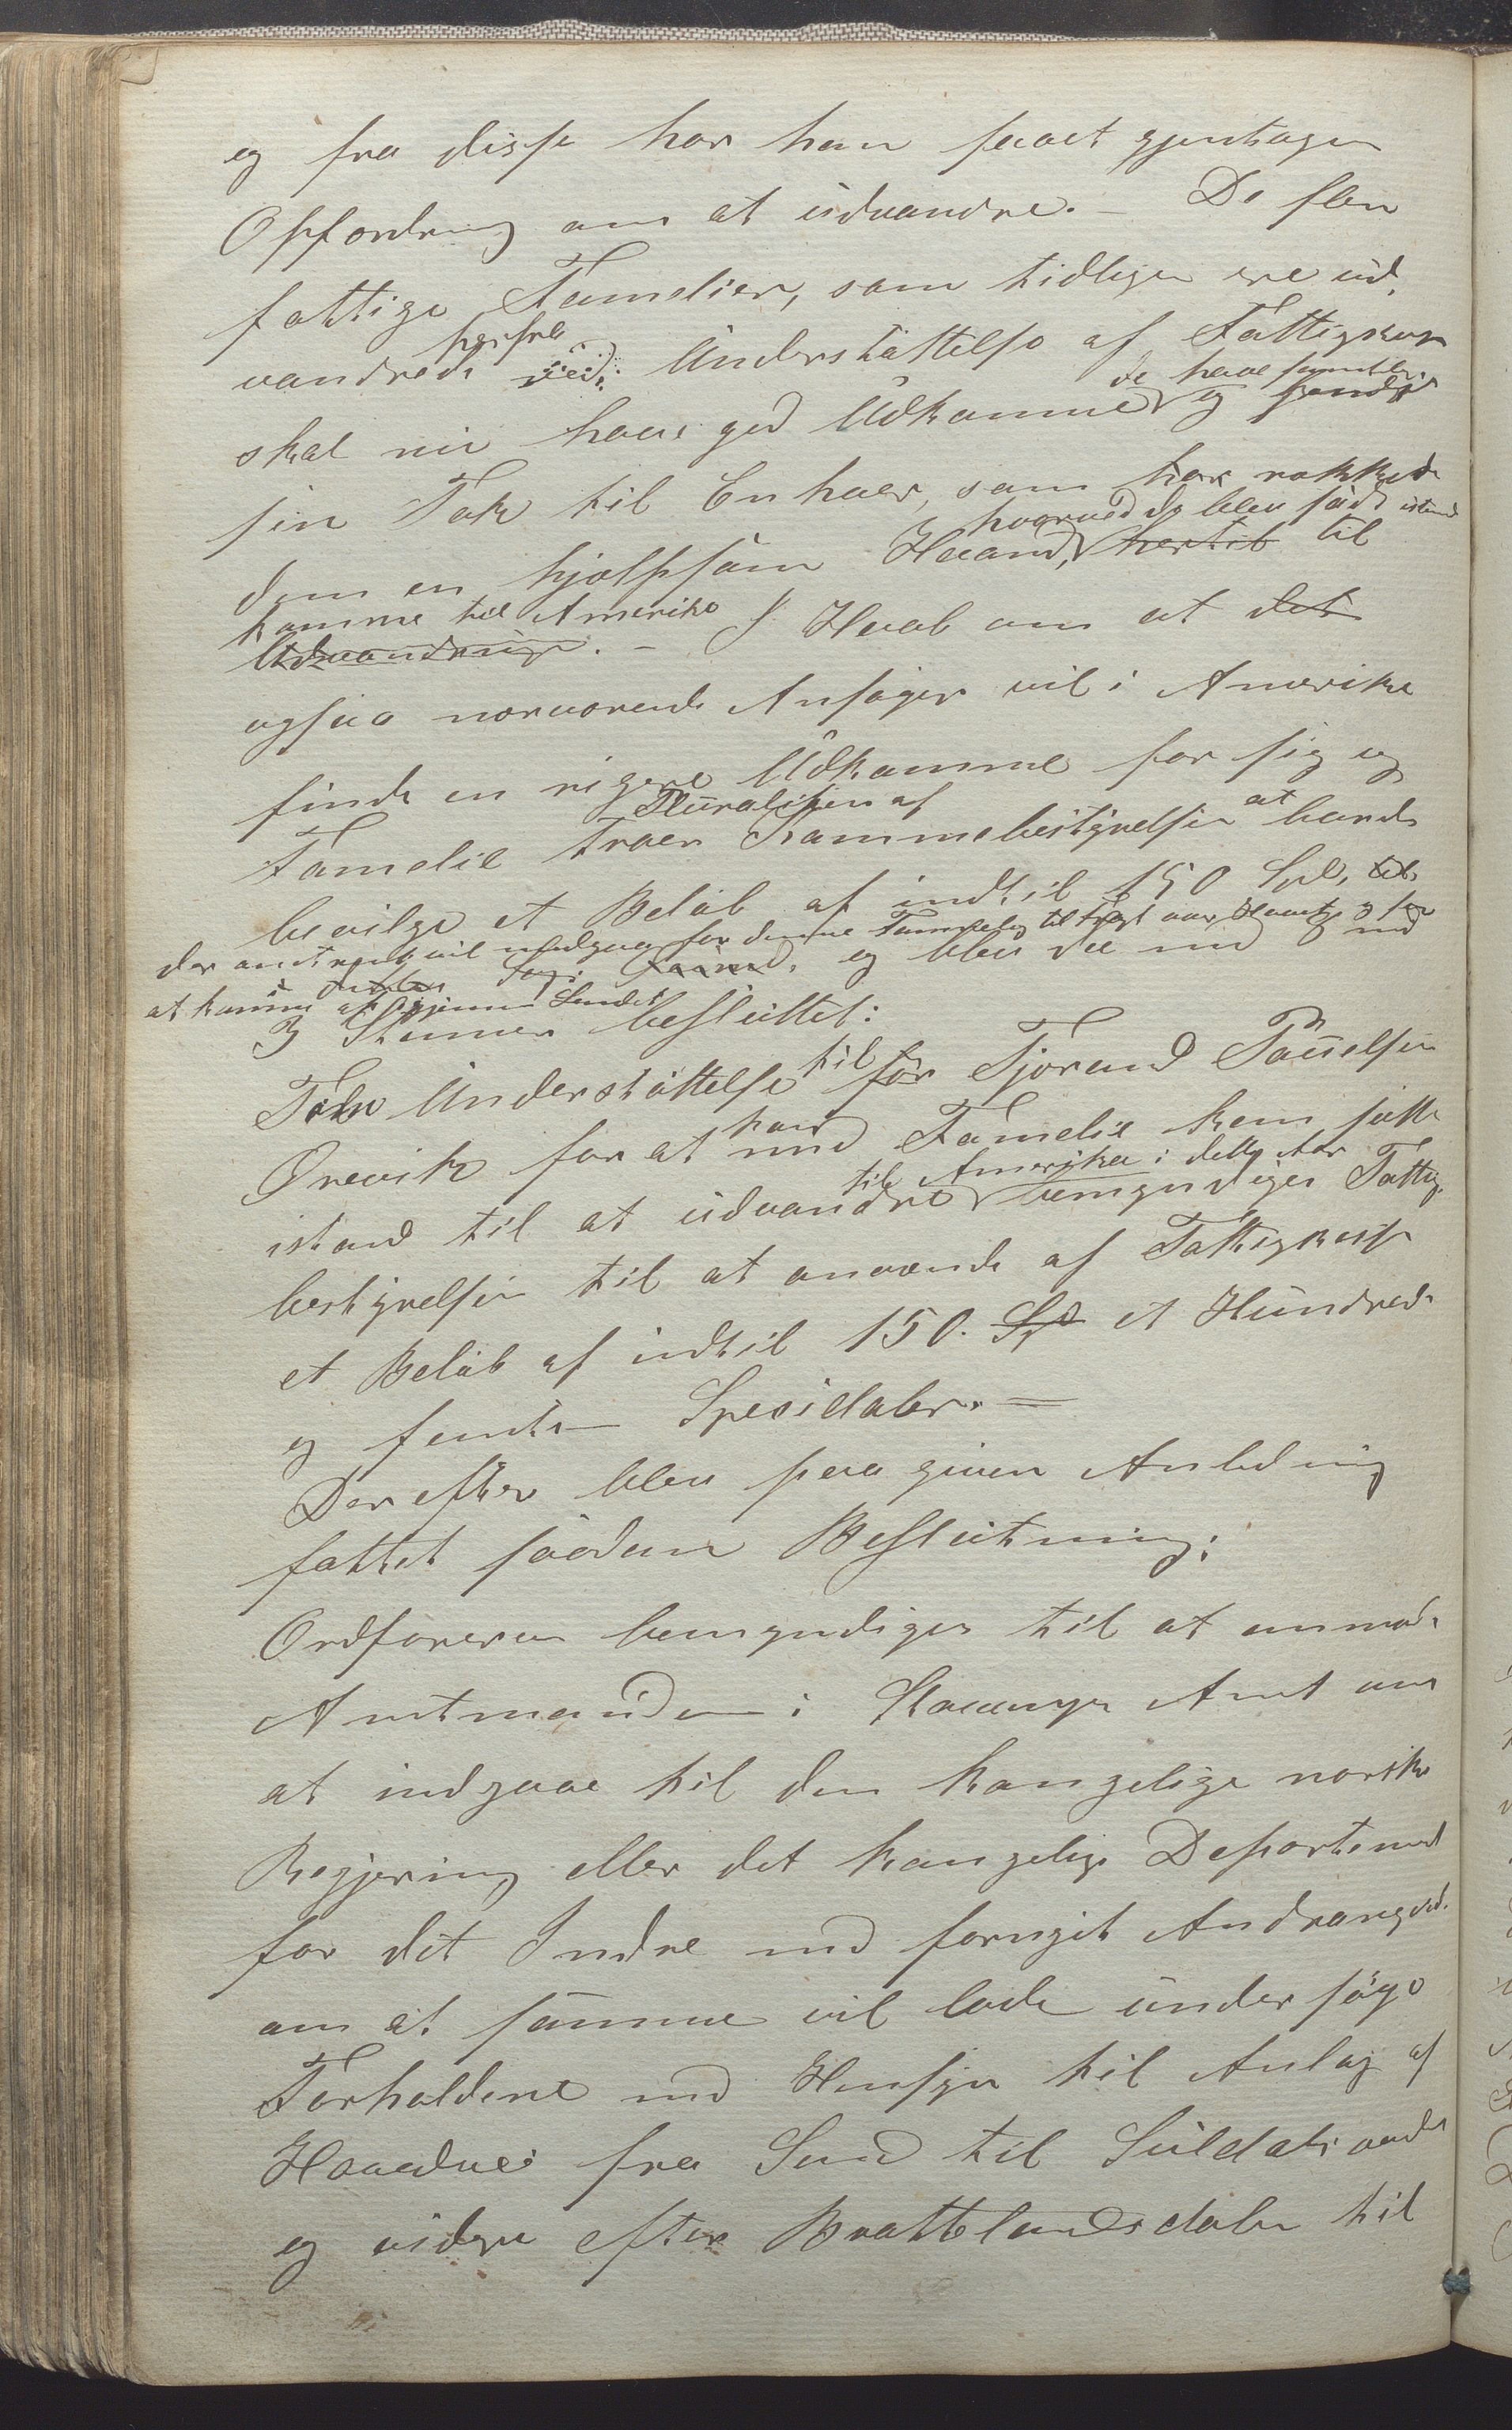 og fra disse har han faaet gjentagen
Opfordring om at udvandre. – De flere
fattige Familier, som tidligere ere ud-
herfra
vandrede ved Understøttelse af Fattigkassen
de have
skal nu have god Udkomme og sendt
sin Tak til Enhver, som har rakkede
hvorved de blev satte istand
dem en hjælpsom Haand, hertil til
komme til Amerika
Udvandringe. – I Haab om at det
ogsaa nærværende Ansøger vil i Amerika
finde en rigere Udkomme for sig og
Pluraliteten af
Familie troer Kommebestyrelsen at burde
bevilge et Beløb af indtil 150 Spd, til
der vil medgaa for denne Familie til
og blev det med
at komme igjennem Landet
3 Stemmer besluttet:
til
Som Understøttelse for Tjerand Paulsen
han
Orevik for at med Familie kan sætte
til Amerika i dette Aar
istand til at udvandre bemyndiges Fattig-
bestyrelsen til at anvende af Fattigkassen
et Beløb af indtil 150. Spd et Hundrede
og femti Spesidaler. =
Derefter blev paa given Anledning
fattet saadan Beslutning:
Ordføreren bemyndiges til at anmode
Amtmanden i Stavanger Amt om
at indgaae til den kongelige norske
Regjering eller det kongelige Departement
for det Indre med fornyet Andragende
om at samme vil lade undersøge
Forholdene med Hensyn til Anlæg af
Hovedvei fra Sand til Suldalsvandet
og videre efter Brattelandsdalen til